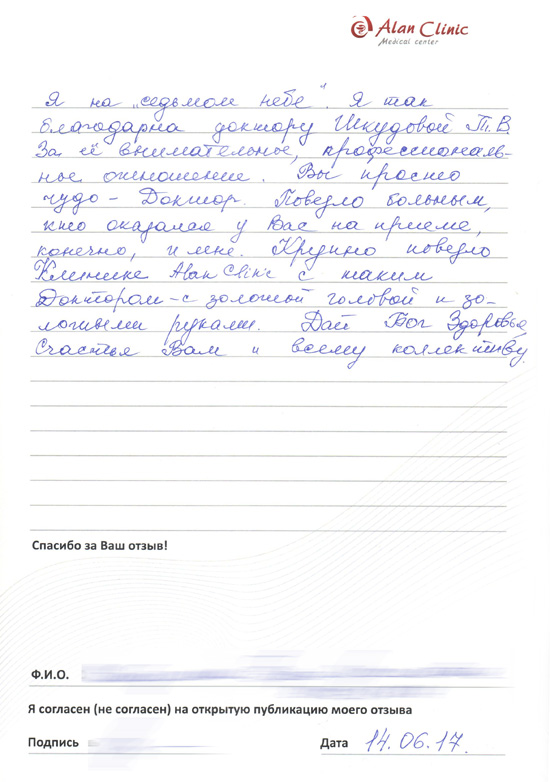 Alan Clinic
Medical center
Я на „седьмом небе". Я так
благодарна доктору Шкудовой Т.В.
За её внимательное, профессиональ-
ное отношение. Вы просто
чудо - Доктор. Повезло больным,
кто оказался у Вас на приеме,
конечно, и мне. Крупно повезло
Клинике Alan Clinic с таким
Доктором - с золотой головой и зо-
лотыми руками. Дай Бог Здоровья,
Счастья Вам и всему коллективу.
Спасибо за Ваш отзыв!
Ф.И.О.
Я согласен (не согласен) на открытую публикацию моего отзыва
Подпись Дата 14.06.17.